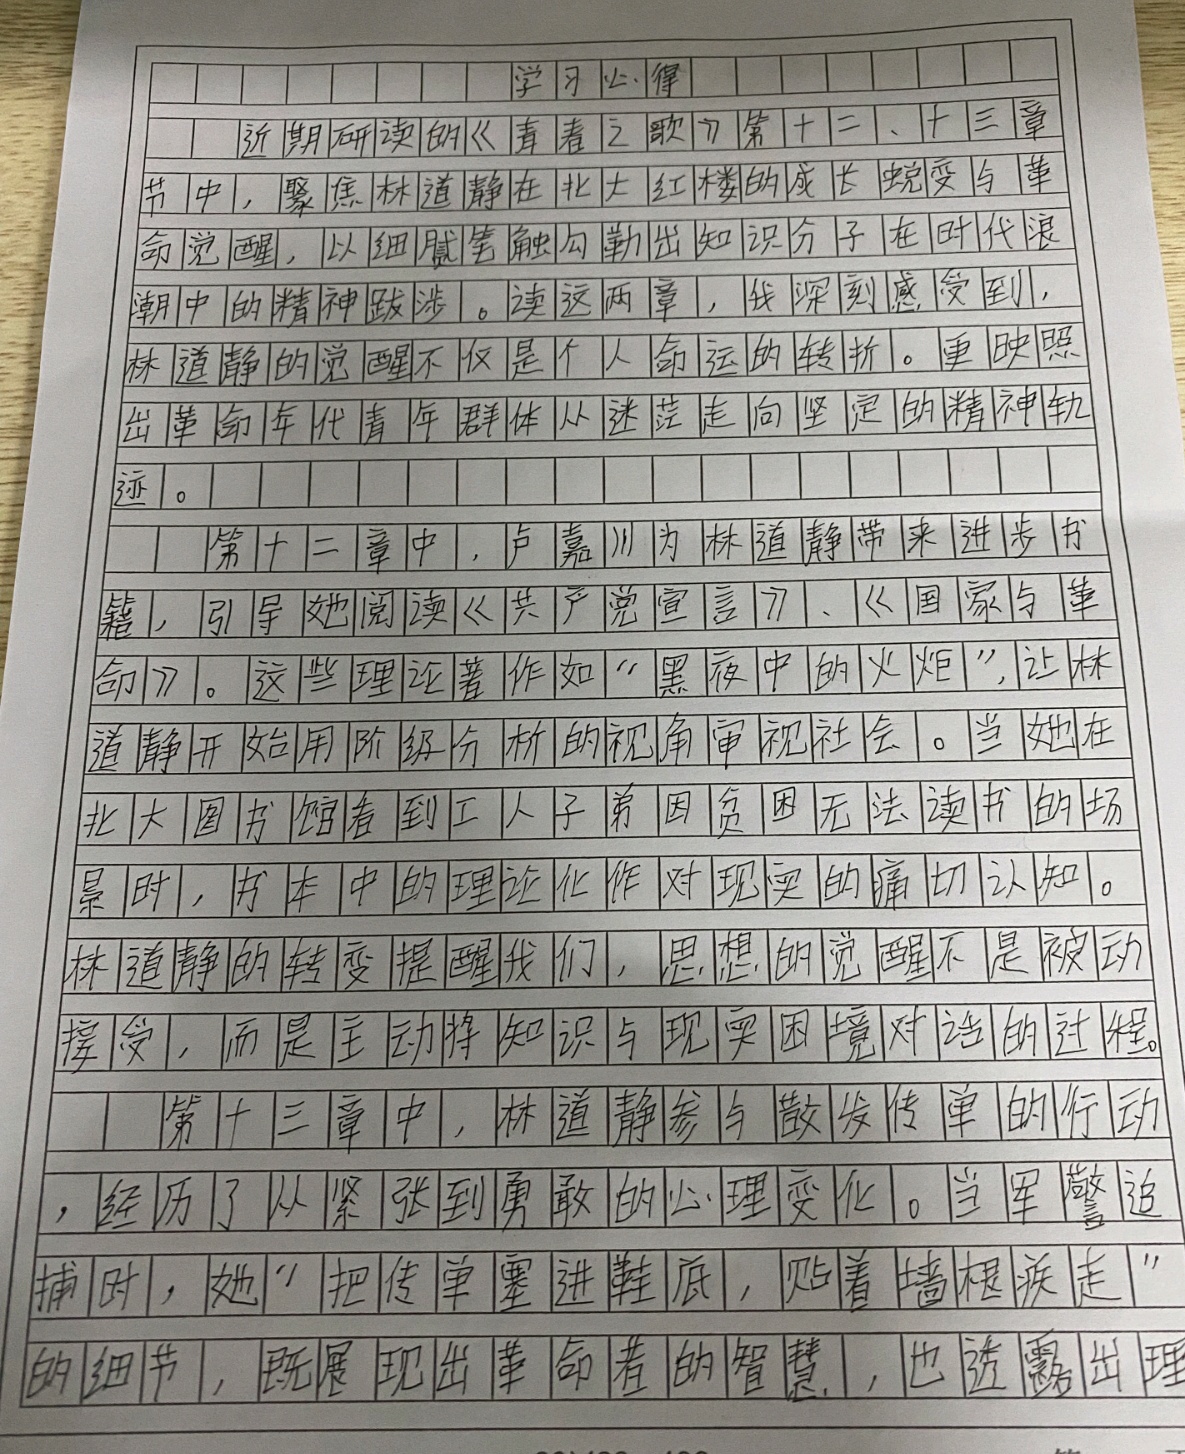 学习心得
近期研读的《青春之歌》第十二、十三章
节中，聚焦林道静在北大红楼的成长蜕变与革
命觉醒，以细腻笔触勾勒出知识分子在时代浪
潮中的精神跋涉。读这两章，我深刻感受到，
林道静的觉醒不仅是个人命运的转折。更映照
出革命年代青年群体从迷茫走向坚定的精神轨
迹。
第十二章中，卢嘉川为林道静带来进步书
籍，引导她阅读《共产党宣言》、《国家与革
命》。这些理论著作如“黑夜中的火炬”，让林
道静开始用阶级分析的视角审视社会。当她在
北大图书馆看到工人子弟因贫困无法读书的场
景时，书本中的理论化作对现实的痛切认知。
林道静的转变提醒我们，思想的觉醒不是被动
接受，而是主动将知识与现实困境对话的过程。
第十三章中，林道静参与散发传单的行动
，经历了从紧张到勇敢的心理变化。当军警追
捕时，她“把传单塞进鞋底，贴着墙根疾走”
的细节，既展现出革命者的智慧，也透露出理